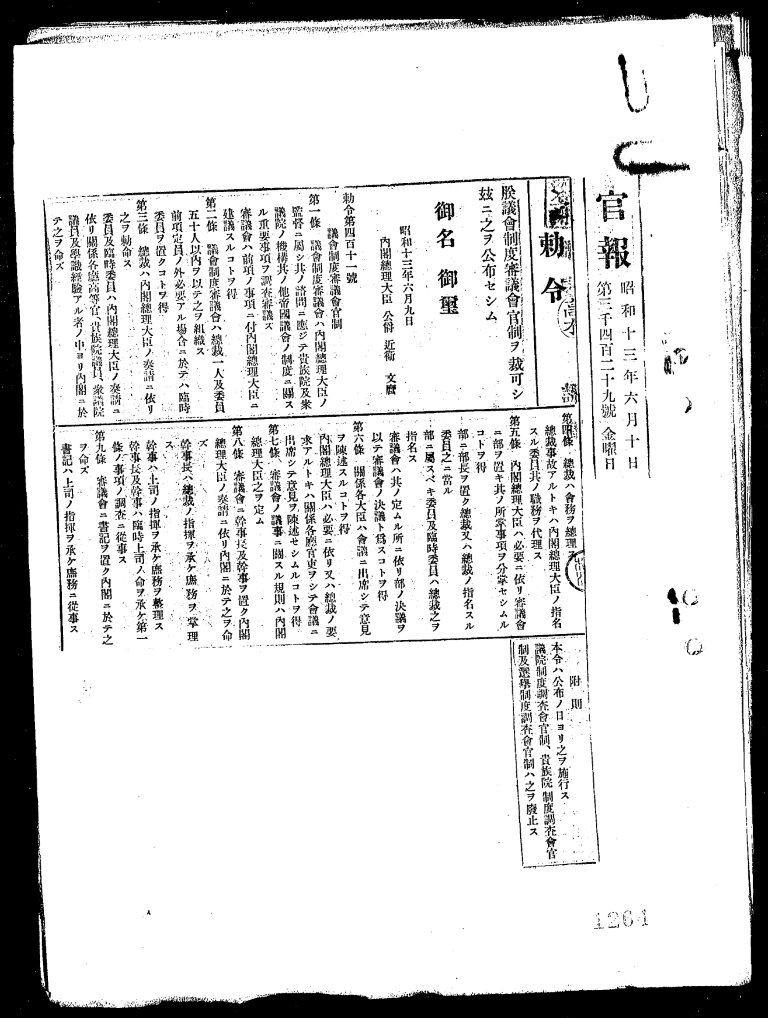 官報
昭和十三年六月十日
第三千四百二十九號 金曜日
勅令
朕議會制度審議會官制ヲ裁可シ
玆ニ之ヲ公布セシム
御名 御璽
昭和十三年六月九日
內閣總理大臣 公爵 近衞 文麿
勅令第四百十一號
議會制度審議會官制
第一條 議會制度審議會ハ內閣總理大臣ノ
監督ニ屬シ其ノ諮問ニ應ジテ貴族院及衆
議院ノ機構其ノ他帝國議會ノ制度ニ關ス
ル重要事項ヲ調査審議ス
審議會ハ前項ノ事項ニ付內閣總理大臣ニ
建議スルコトヲ得
第二條 議會制度審議會ハ總裁一人及委員
五十人以內ヲ以テ之ヲ組織ス
前項定員ノ外必要アル場合ニ於テハ臨時
委員ヲ置クコトヲ得
第三條 總裁ハ內閣總理大臣ノ奏請ニ依リ
之ヲ勅命ス
委員及臨時委員ハ內閣總理大臣ノ奏請ニ
依リ關係各廳高等官、貴族院議員、衆議院
議員及學識經驗アル者ノ中ヨリ內閣ニ於
テ之ヲ命ズ
第四條 總裁ハ會務ヲ總理ス
總裁事故アルトキハ內閣總理大臣ノ指名
スル委員其ノ職務ヲ代理ス
第五條 內閣總理大臣ハ必要ニ依リ審議會
ニ部ヲ置キ其ノ所掌事項ヲ分掌セシムル
コトヲ得
部ニ部長ヲ置ク總裁又ハ總裁ノ指名スル
委員之ニ當ル
部ニ屬スベキ委員及臨時委員ハ總裁之ヲ
指名ス
審議會ハ其ノ定ムル所ニ依リ部ノ決議ヲ
以テ審議會ノ決議ト爲スコトヲ得
第六條 關係各大臣ハ會議ニ出席シテ意見
ヲ陳述スルコトヲ得
內閣總理大臣ハ必要ニ依リ又ハ總裁ノ要
求アルトキハ關係各廳官吏ヲシテ會議ニ
出席シテ意見ヲ陳述セシムルコトヲ得
第七條 審議會ノ議事ニ關スル規則ハ內閣
總理大臣之ヲ定ム
第八條 審議會ニ幹事長及幹事ヲ置ク內閣
總理大臣ノ奏請ニ依リ內閣ニ於テ之ヲ命
ズ
幹事長ハ總裁ノ指揮ヲ承ケ庶務ヲ掌理
ス
幹事ハ上司ノ指揮ヲ承ケ庶務ヲ整理ス
幹事長及幹事ハ臨時上司ノ命ヲ承ケ第一
條ノ事項ノ調査ニ從事ス
第九條 審議會ニ書記ヲ置ク內閣ニ於テ之
ヲ命ズ
書記ハ上司ノ指揮ヲ承ケ庶務ニ從事ス
附則
本令ハ公布ノ日ヨリ之ヲ施行ス
議院制度調査會官制、貴族院制度調査會官
制及選擧制度調査會官制ハ之ヲ廢止ス
1264